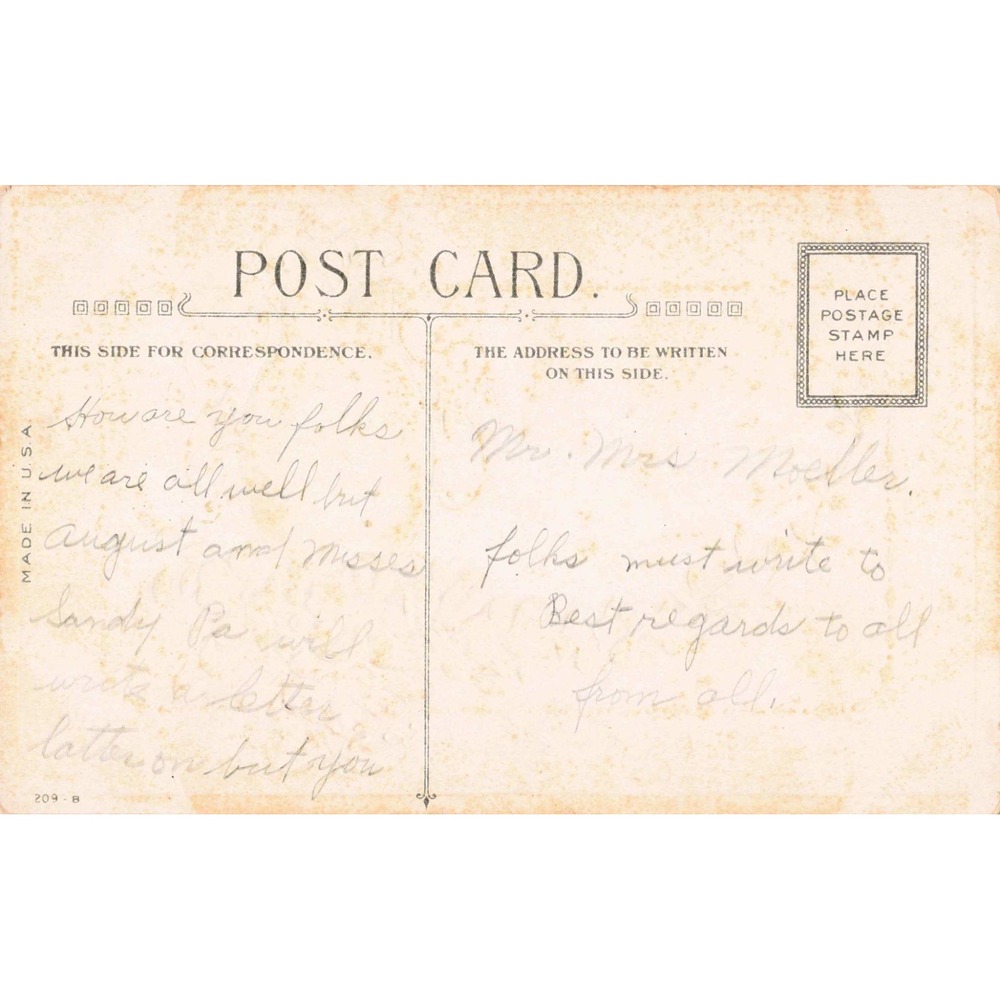 POST CARD.
THIS SIDE FOR CORRESPONDENCE.
THE ADDRESS TO BE WRITTEN
ON THIS SIDE.
PLACE
POSTAGE
STAMP
HERE
MADE IN U.S.A
How are you folks
we are all well but
August and Misses
Sandy Pa will
write a letter
latter on but you
209 - B
Mr. Mrs Moeller.
folks must write to
Best regards to all
from all.